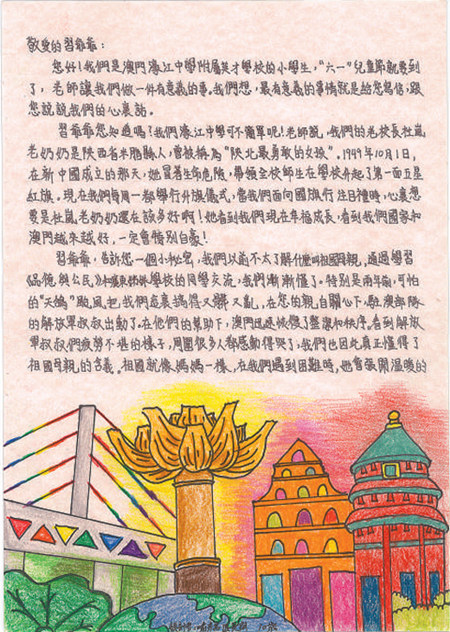 敬爱的習爺爺：
您好！我們是澳門濠江中學附屬英才學校的小學生，“六一”兒童節就要到
了，老師讓我們做一件有意義的事。我們想，最有意義的事情就是給您寫信，跟
您說說我們的心裏話。
習爺爺您知道嗎？我們濠江中學可不簡單呢！老師說，我們的老校長杜嵐
老奶奶是陝西省米脂縣人，曾被稱為“陝北最勇敢的女孩”。1949年10月1日，
在新中國成立的那天，她冒著生命危險，帶領全校師生在學校升起了第一面五星
紅旗。現在我們每周一都舉行升旗儀式，當我們面向國旗行注目禮時，心裏想
要是杜嵐老奶奶還在該多好啊！她看到我們現在幸福成長，看到我們國家和
澳門越來越好，一定會特別自豪！
習爺爺，告訴您一個小秘密，我們以前不太了解什麼叫祖國母親，通過學習
《品德與公民》 學校的同學交流，我們漸漸懂了。特別是兩年前，可怕
的“天鴿”颱風把我們家裏搞得又髒又亂，在您的親自關心下，駐澳部隊
的解放軍叔叔出動了。在他們的幫助下，澳門迅速恢復了整潔和秩序。看到解放
軍叔叔們疲勞不堪的樣子，周圍很多人都感動得哭了；我們也因此真正懂得了
祖國母親的含義。祖國就像媽媽一樣，在我們遇到困難時，她會張開溫暖的